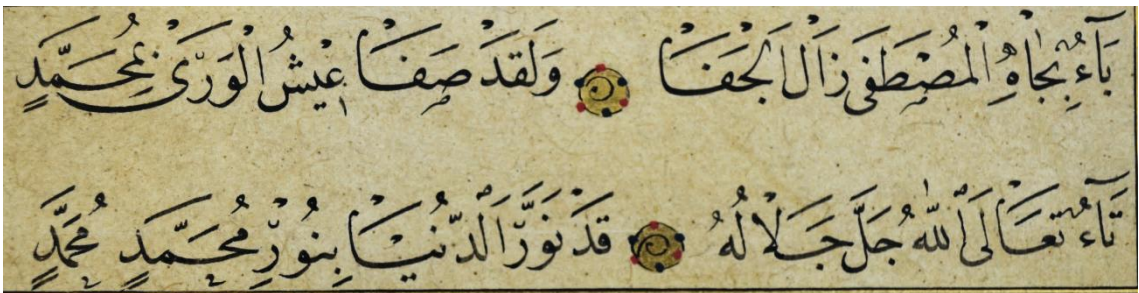 بَآءٌ بِجَاهِ الْمُصْطَفَى زَالَ الْجَفَا وَلَقَدْ صَفَا عَيْشُ الْوَرَى بِمُحَمَّدٍ
تَآءٌ تَعَالَى اللهُ جَلَّ جَلَالُهُ قَدْ نَوَّرَ الدُّنْيَا بِنُوْرِ مُحَمَّدٍ مُحَمَّدٍ